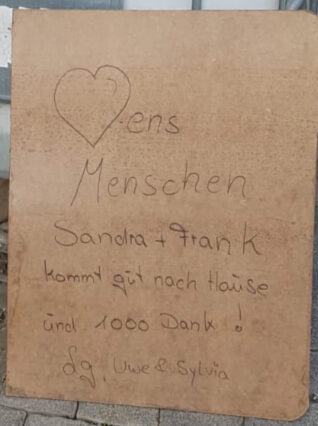 ♡-ens
Menschen
Sandra + Frank
kommt gut nach Hause
und 1000 Dank !
Lg. Uwe & Sylvia